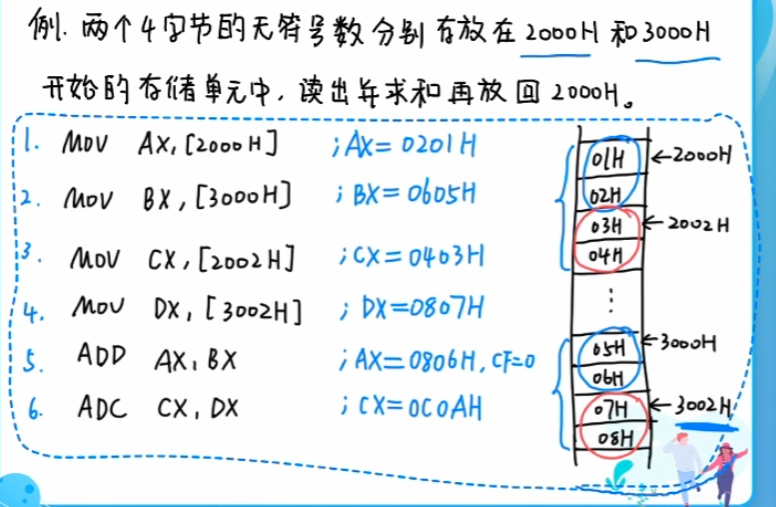 例. 两个4字节的无符号数分别存放在2000H和3000H
开始的存储单元中,读出并求和再放回2000H。
1. MOV AX, [2000H] ;AX=0201H
2. MOV BX, [3000H] ;BX=0605H
3. MOV CX, [2002H] ;CX=0403H
4. MOV DX, [3002H] ;DX=0807H
5. ADD AX, BX ;AX=0806H, CF=0
6. ADC CX, DX ;CX=0C0AH
01H ←2000H
02H
03H ←2002H
04H
⋮
05H ←3000H
06H
07H ←3002H
08H